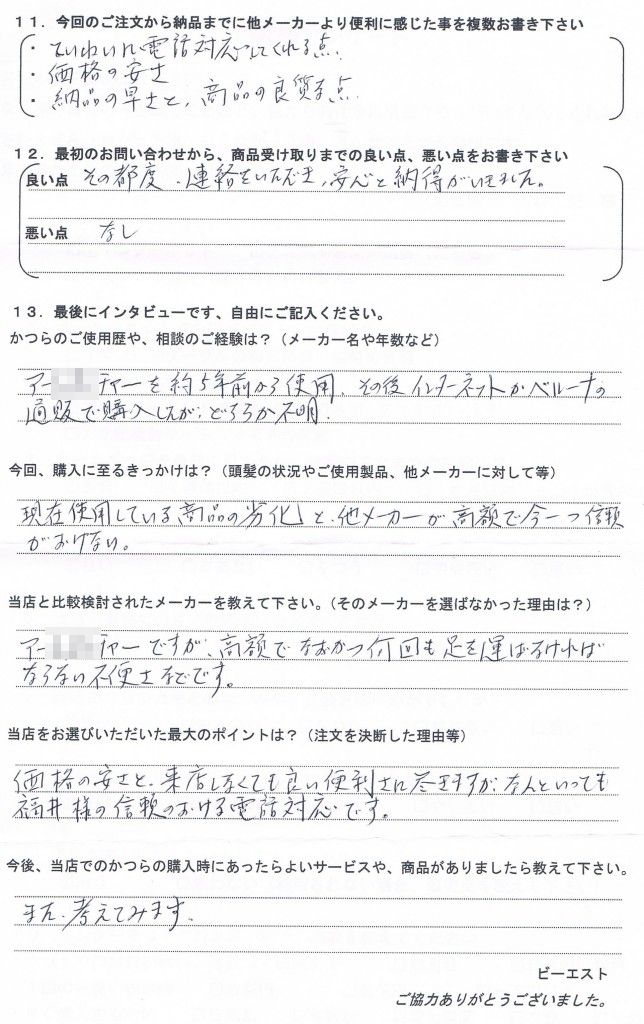 １１．今回のご注文から納品までに他メーカーより便利に感じた事を複数お書き下さい
・ていねいに電話対応してくれる点.
・価格の安さ
・納品の早さと、商品の良質な点.
１２．最初のお問い合わせから、商品受け取りまでの良い点、悪い点をお書き下さい
良い点 その都度、連絡をいただき、安心と納得がいきました。
悪い点 なし
１３．最後にインタビューです、自由にご記入ください。
かつらのご使用歴や、相談のご経験は？（メーカー名や年数など）
アー チャーを約5年前から使用、その後インターネットかベルーナの
通販で購入したが、どちらか不明.
今回、購入に至るきっかけは？（頭髪の状況やご使用製品、他メーカーに対して等）
現在使用している商品の劣化と、他メーカーが高額で今一つ信頼
がおけない。
当店と比較検討されたメーカーを教えて下さい。（そのメーカーを選ばなかった理由は？）
アー チャーですが、高額でなおかつ何回も足を運ばなければ
ならない不便さなどです。
当店をお選びいただいた最大のポイントは？（注文を決断した理由等）
価格の安さと、来店しなくても良い便利さに尽きますが、なんといっても
福井様の信頼のおける電話対応です。
今後、当店でのかつらの購入時にあったらよいサービスや、商品がありましたら教えて下さい。
また、考えてみます.
ビーエスト
ご協力ありがとうございました。